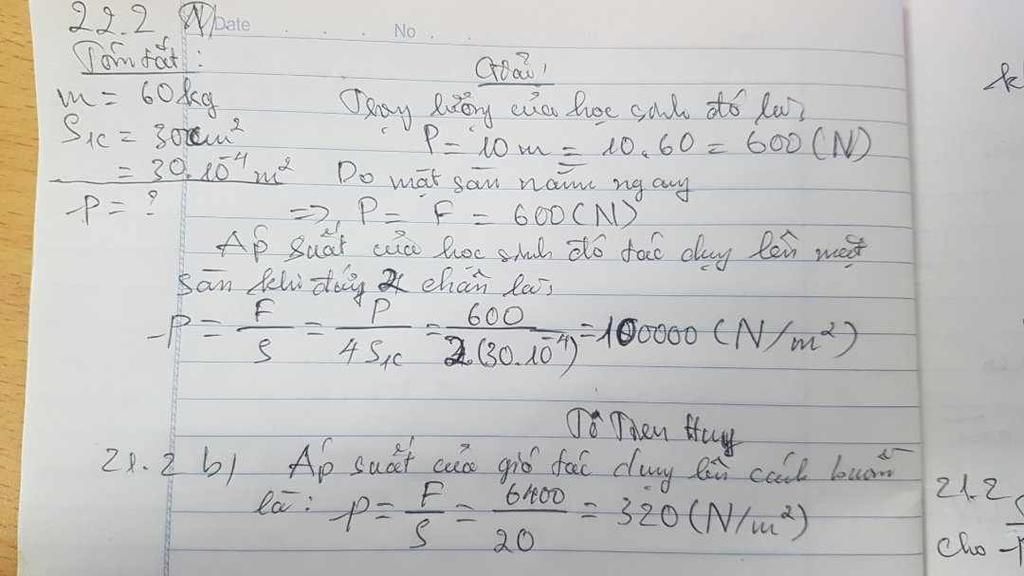 22.2 N Date . . . . No . .
Tóm tắt:
Giải
m = 60kg
Trọng lượng của học sinh đó là
S1C = 30cm²
P = 10m = 10.60 = 600 (N)
= 30.10⁻⁴ m²
Do mặt sàn nằm ngang
p = ?
=> P = F = 600 (N)
Áp suất của học sinh đó tác dụng lên mặt
sàn khi đứng 2 chân là
p = F/S = P/4S1C = 600/2.(30.10⁻⁴) = 100000 (N/m²)
Huy
21.2 b) Áp suất của gió tác dụng lên cánh buồm
là: p = F/S = 6400/20 = 320 (N/m²)
21.2
cho